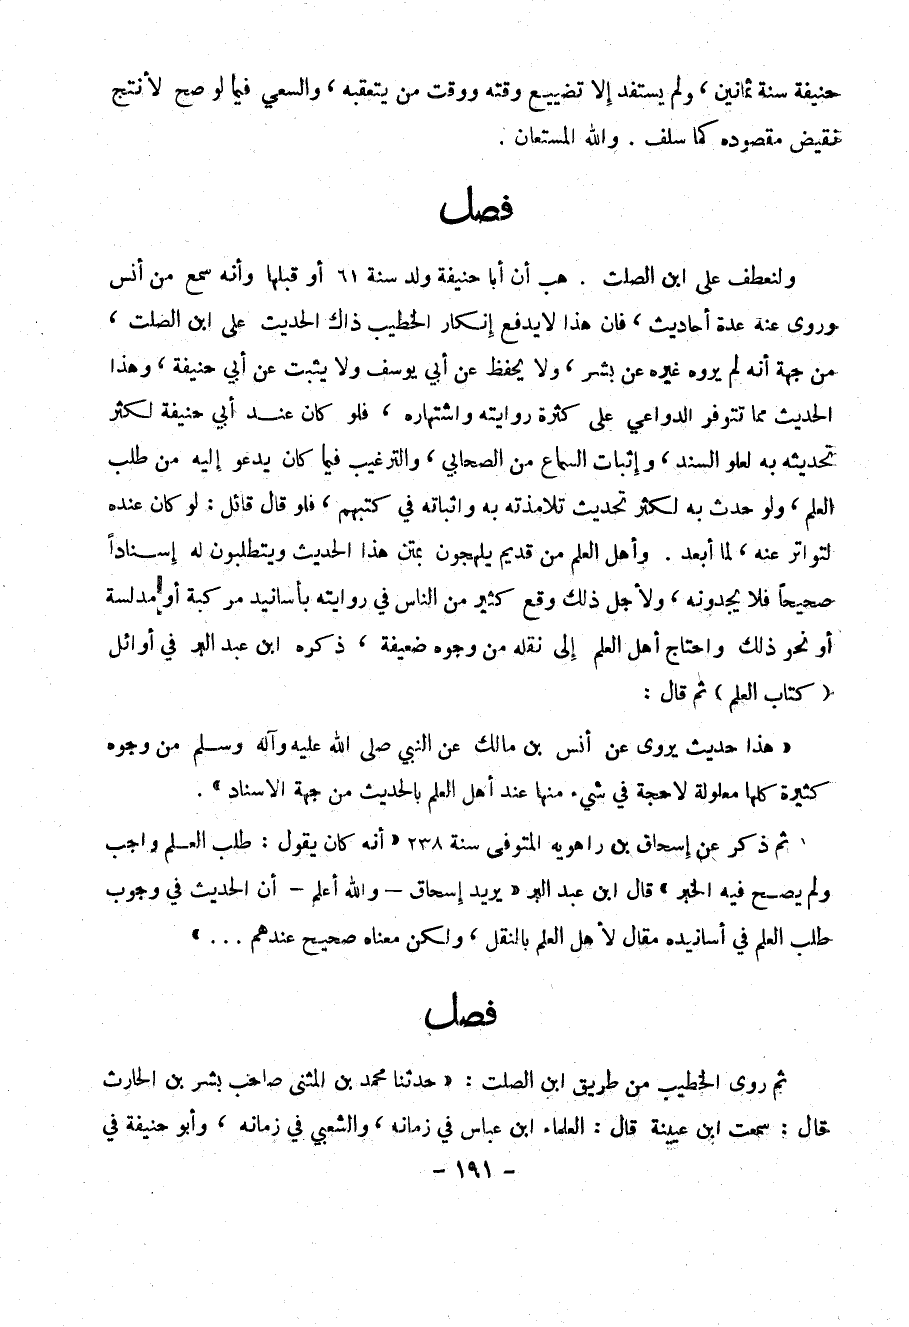 حنيفة سنة ثمانين ، ولم يستفد إلا تضييع وقته ووقت من يتعقبه ، والسعي فيما لو صح لأنتج
نقيض مقصوده كما سلف . والله المستعان .
فصل
ولنعطف على ابن الصلت . هب أن أبا حنيفة ولد سنة ٦١ أو قبلها وأنه سمع من أنس
وروى عنه عدة أحاديث ، فان هذا لا يدفع إنكار الخطيب ذاك الحديث على ابن الصلت ،
من جهة أنه لم يروه غيره عن بشر ، ولا يحفظ عن أبي يوسف ولا يثبت عن أبي حنيفة ، وهذا
الحديث مما تتوفر الدواعي على كثرة روايته واشتهاره ، فلو كان عند أبي حنيفة لكثر
تحديثه به لعلو السند ، وإثبات السماع من الصحابي ، والترغيب فيما كان يدعو إليه من طلب
العلم ، ولو حدث به لكثر تحديث تلامذته به واثباته في كتبهم ، فلو قال قائل : لو كان عنده
لتواتر عنه ، لما أبعد . وأهل العلم من قديم يلهجون بمتن هذا الحديث ويتطلبون له إسناداً
صحيحاً فلا يجدونه ، ولأجل ذلك وقع كثير من الناس في روايته بأسانيد مركبة أو مدلسة
أو نحو ذلك واحتاج أهل العلم إلى نقله من وجوه ضعيفة ، ذكره ابن عبد البر في أوائل
( كتاب العلم ) ثم قال :
« هذا حديث يروى عن أنس بن مالك عن النبي صلى الله عليه وآله وسلم من وجوه
كثيرة كلها معلولة لا حجة في شيء منها عند أهل العلم بالحديث من جهة الاسناد » .
ثم ذكر عن إسحاق بن راهويه المتوفى سنة ٢٣٨ « أنه كان يقول : طلب العلم واجب
ولم يصح فيه الخبر » قال ابن عبد البر « يريد إسحاق – والله أعلم – أن الحديث في وجوب
طلب العلم في أسانيده مقال لأهل العلم بالنقل ، ولكن معناه صحيح عندهم ... »
فصل
ثم روى الخطيب من طريق ابن الصلت : « حدثنا محمد بن المثنى صاحب بشر بن الحارث
قال : سمعت ابن عيينة قال : العلماء ابن عباس في زمانه ، والشعبي في زمانه ، وأبو حنيفة في
- ١٩١ -